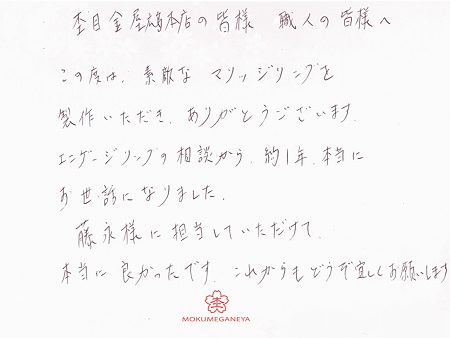 杢目金屋本店の皆様 職人の皆様へ
この度は、素敵な マリッジリングを
製作いただき、ありがとうございます。
エンゲージリングの相談から、約1年、本当に
お世話になりました。
藤永様に担当していただけて、
本当に良かったです。これからもどうぞ宜しくお願いします
MOKUMEGANEYA